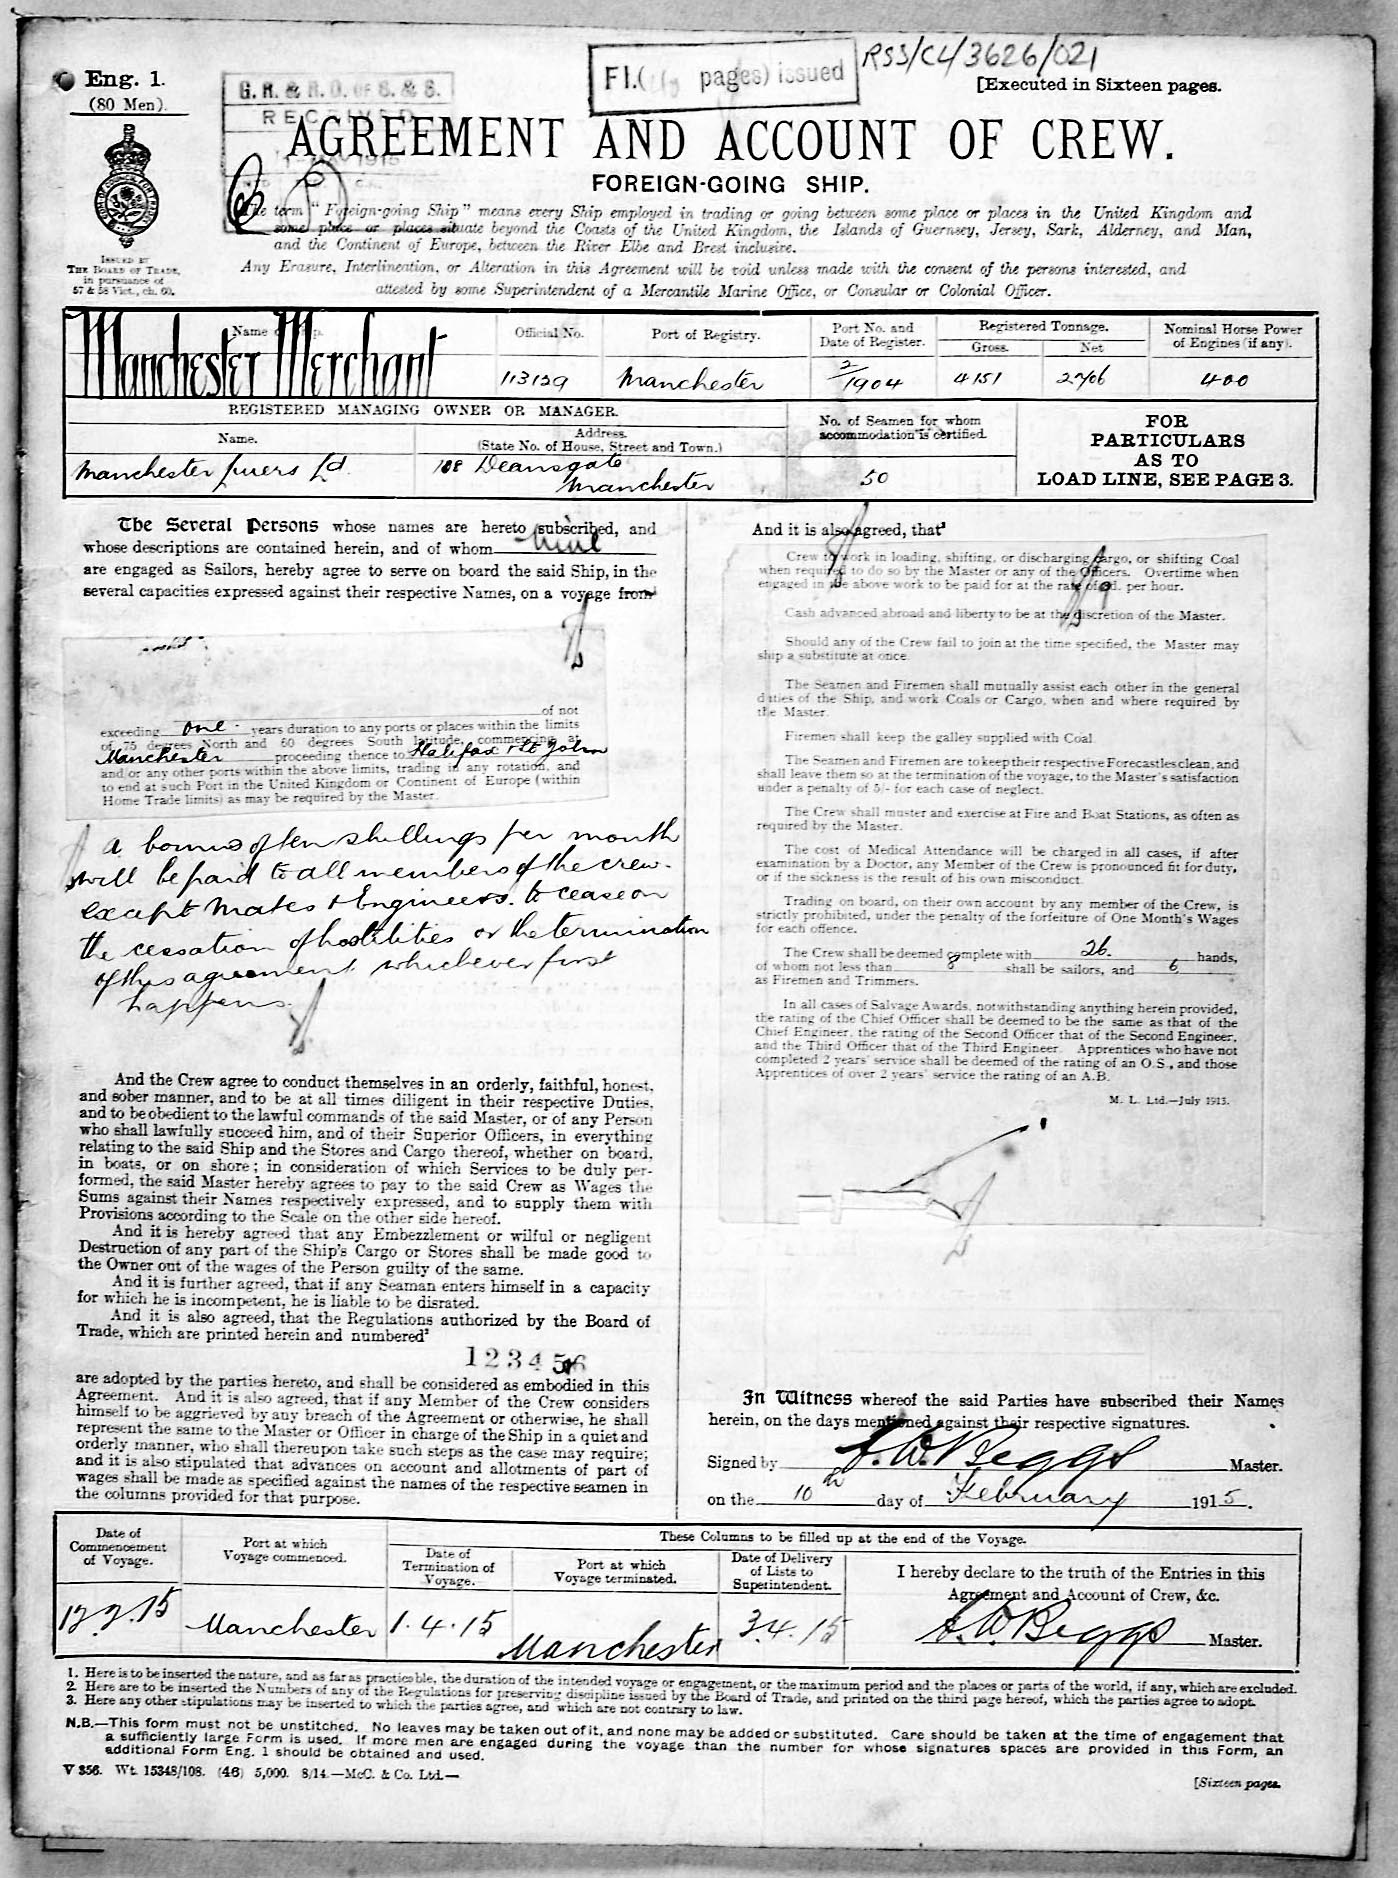 Eng. 1.
(80 Men).
G. R. & R. O. OF S. & S.
RECEIVED
MAY 1915
F1.( pages) issued
RSS/CL/3626/021
[Executed in Sixteen pages.
AGREEMENT AND ACCOUNT OF CREW.
FOREIGN-GOING SHIP.
ISSUED BY
THE BOARD OF TRADE,
in pursuance of
57 & 58 Vict., ch. 60.
The term "Foreign-going Ship" means every Ship employed in trading or going between some place or places in the United Kingdom and
some place or places situate beyond the Coasts of the United Kingdom, the Islands of Guernsey, Jersey, Sark, Alderney, and Man,
and the Continent of Europe, between the River Elbe and Brest inclusive.
Any Erasure, Interlineation, or Alteration in this Agreement will be void unless made with the consent of the persons interested, and
attested by some Superintendent of a Mercantile Marine Office, or Consular or Colonial Officer.
Name of Ship.
Official No.
Port of Registry.
Port No. and
Date of Register.
Registered Tonnage.
Gross.
Net
Nominal Horse Power
of Engines (if any).
Manchester Merchant
113129
Manchester
2/1904
4151
2706
400
REGISTERED MANAGING OWNER OR MANAGER.
Name.
Address.
(State No. of House, Street and Town.)
No. of Seamen for whom
accommodation is certified.
FOR
PARTICULARS
AS TO
LOAD LINE, SEE PAGE 3.
Manchester Liners Ld.
108 Deansgate
Manchester
50
The Several Persons whose names are hereto subscribed, and
whose descriptions are contained herein, and of whom nine
are engaged as Sailors, hereby agree to serve on board the said Ship, in the
several capacities expressed against their respective Names, on a voyage from
of not
exceeding one years duration to any ports or places within the limits
of 75 degrees North and 60 degrees South latitude, commencing at
Manchester proceeding thence to Halifax & St John
and/or any other ports within the above limits, trading in any rotation, and
to end at such Port in the United Kingdom or Continent of Europe (within
Home Trade limits) as may be required by the Master.
A bonus of ten shillings per month
will be paid to all members of the crew
except Mates & Engineers. to cease on
the cessation of hostilities or the termination
of this agreement whichever first
happens.
And the Crew agree to conduct themselves in an orderly, faithful, honest,
and sober manner, and to be at all times diligent in their respective Duties,
and to be obedient to the lawful commands of the said Master, or of any Person
who shall lawfully succeed him, and of their Superior Officers, in everything
relating to the said Ship and the Stores and Cargo thereof, whether on board,
in boats, or on shore; in consideration of which Services to be duly per-
formed, the said Master hereby agrees to pay to the said Crew as Wages the
Sums against their Names respectively expressed, and to supply them with
Provisions according to the Scale on the other side hereof.
And it is hereby agreed that any Embezzlement or wilful or negligent
Destruction of any part of the Ship's Cargo or Stores shall be made good to
the Owner out of the wages of the Person guilty of the same.
And it is further agreed, that if any Seaman enters himself in a capacity
for which he is incompetent, he is liable to be disrated.
And it is also agreed, that the Regulations authorized by the Board of
Trade, which are printed herein and numbered²
1 2 3 4 5 & 6
are adopted by the parties hereto, and shall be considered as embodied in this
Agreement. And it is also agreed, that if any Member of the Crew considers
himself to be aggrieved by any breach of the Agreement or otherwise, he shall
represent the same to the Master or Officer in charge of the Ship in a quiet and
orderly manner, who shall thereupon take such steps as the case may require;
and it is also stipulated that advances on account and allotments of part of
wages shall be made as specified against the names of the respective seamen in
the columns provided for that purpose.
And it is also agreed, that³
Crew to work in loading, shifting, or discharging cargo, or shifting Coal
when required to do so by the Master or any of the Officers. Overtime when
engaged in the above work to be paid for at the rate of d. per hour.
Cash advanced abroad and liberty to be at the discretion of the Master.
Should any of the Crew fail to join at the time specified, the Master may
ship a substitute at once.
The Seamen and Firemen shall mutually assist each other in the general
duties of the Ship, and work Coals or Cargo, when and where required by
the Master.
Firemen shall keep the galley supplied with Coal.
The Seamen and Firemen are to keep their respective Forecastles clean, and
shall leave them so at the termination of the voyage, to the Master's satisfaction
under a penalty of 5/- for each case of neglect.
The Crew shall muster and exercise at Fire and Boat Stations, as often as
required by the Master.
The cost of Medical Attendance will be charged in all cases, if after
examination by a Doctor, any Member of the Crew is pronounced fit for duty,
or if the sickness is the result of his own misconduct.
Trading on board, on their own account by any member of the Crew, is
strictly prohibited, under the penalty of the forfeiture of One Month's Wages
for each offence.
The Crew shall be deemed complete with 26 hands,
of whom not less than 8 shall be sailors, and 6
as Firemen and Trimmers.
In all cases of Salvage Awards, notwithstanding anything herein provided,
the rating of the Chief Officer shall be deemed to be the same as that of the
Chief Engineer, the rating of the Second Officer that of the Second Engineer,
and the Third Officer that of the Third Engineer. Apprentices who have not
completed 2 years' service shall be deemed of the rating of an O.S., and those
Apprentices of over 2 years' service the rating of an A.B.
M. L. Ltd.—July 1913.
In Witness whereof the said Parties have subscribed their Names
herein, on the days mentioned against their respective signatures.
Signed by Beggs Master.
on the 10th day of February 1915.
Date of
Commencement
of Voyage.
Port at which
Voyage commenced.
These Columns to be filled up at the end of the Voyage.
Date of
Termination of
Voyage.
Port at which
Voyage terminated.
Date of Delivery
of Lists to
Superintendent.
I hereby declare to the truth of the Entries in this
Agreement and Account of Crew, &c.
12.2.15
Manchester
1.4.15
Manchester
3.4.15
Beggs Master.
1. Here is to be inserted the nature, and as far as practicable, the duration of the intended voyage or engagement, or the maximum period and the places or parts of the world, if any, which are excluded.
2. Here are to be inserted the Numbers of any of the Regulations for preserving discipline issued by the Board of Trade, and printed on the third page hereof, which the parties agree to adopt.
3. Here any other stipulations may be inserted to which the parties agree, and which are not contrary to law.
N.B.—This form must not be unstitched. No leaves may be taken out of it, and none may be added or substituted. Care should be taken at the time of engagement that
a sufficiently large Form is used. If more men are engaged during the voyage than the number for whose signatures spaces are provided in this Form, an
additional Form Eng. 1 should be obtained and used.
V 356. Wt. 15348/108. (46) 5,000. 8/14.—McC. & Co. Ltd.—
[Sixteen pages.